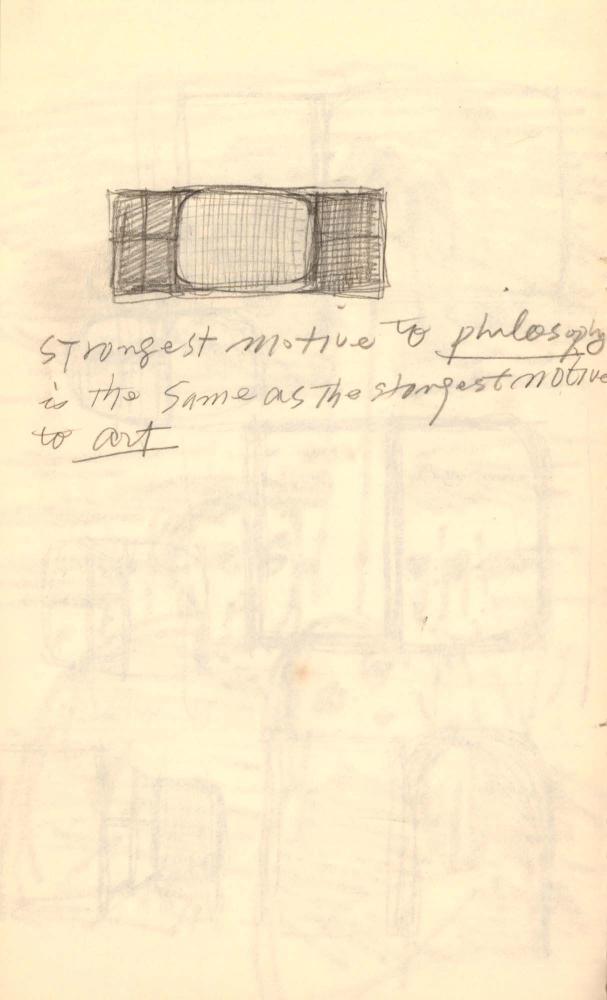 Strongest motive to philosophy
is the same as the stongest motive
to art